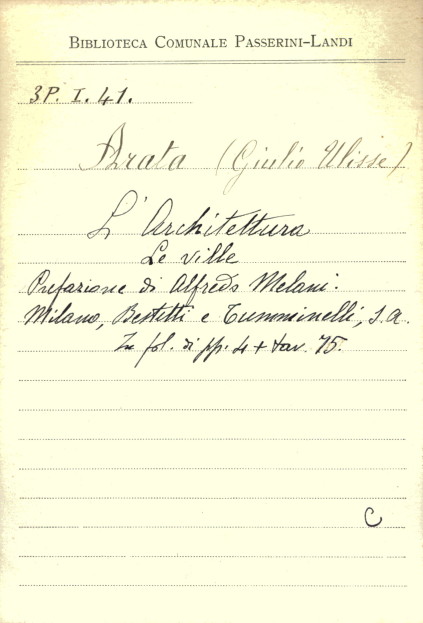 BIBLIOTECA COMUNALE PASSERINI-LANDI
3P. I. 41.
Arata (Giulio Ulisse)
L'Architettura
Le ville
Prefazione di Alfredo Melani.
Milano, Bestetti e Tumminelli, s.a.
In fol. di pp. 4 + tav. 75.
C